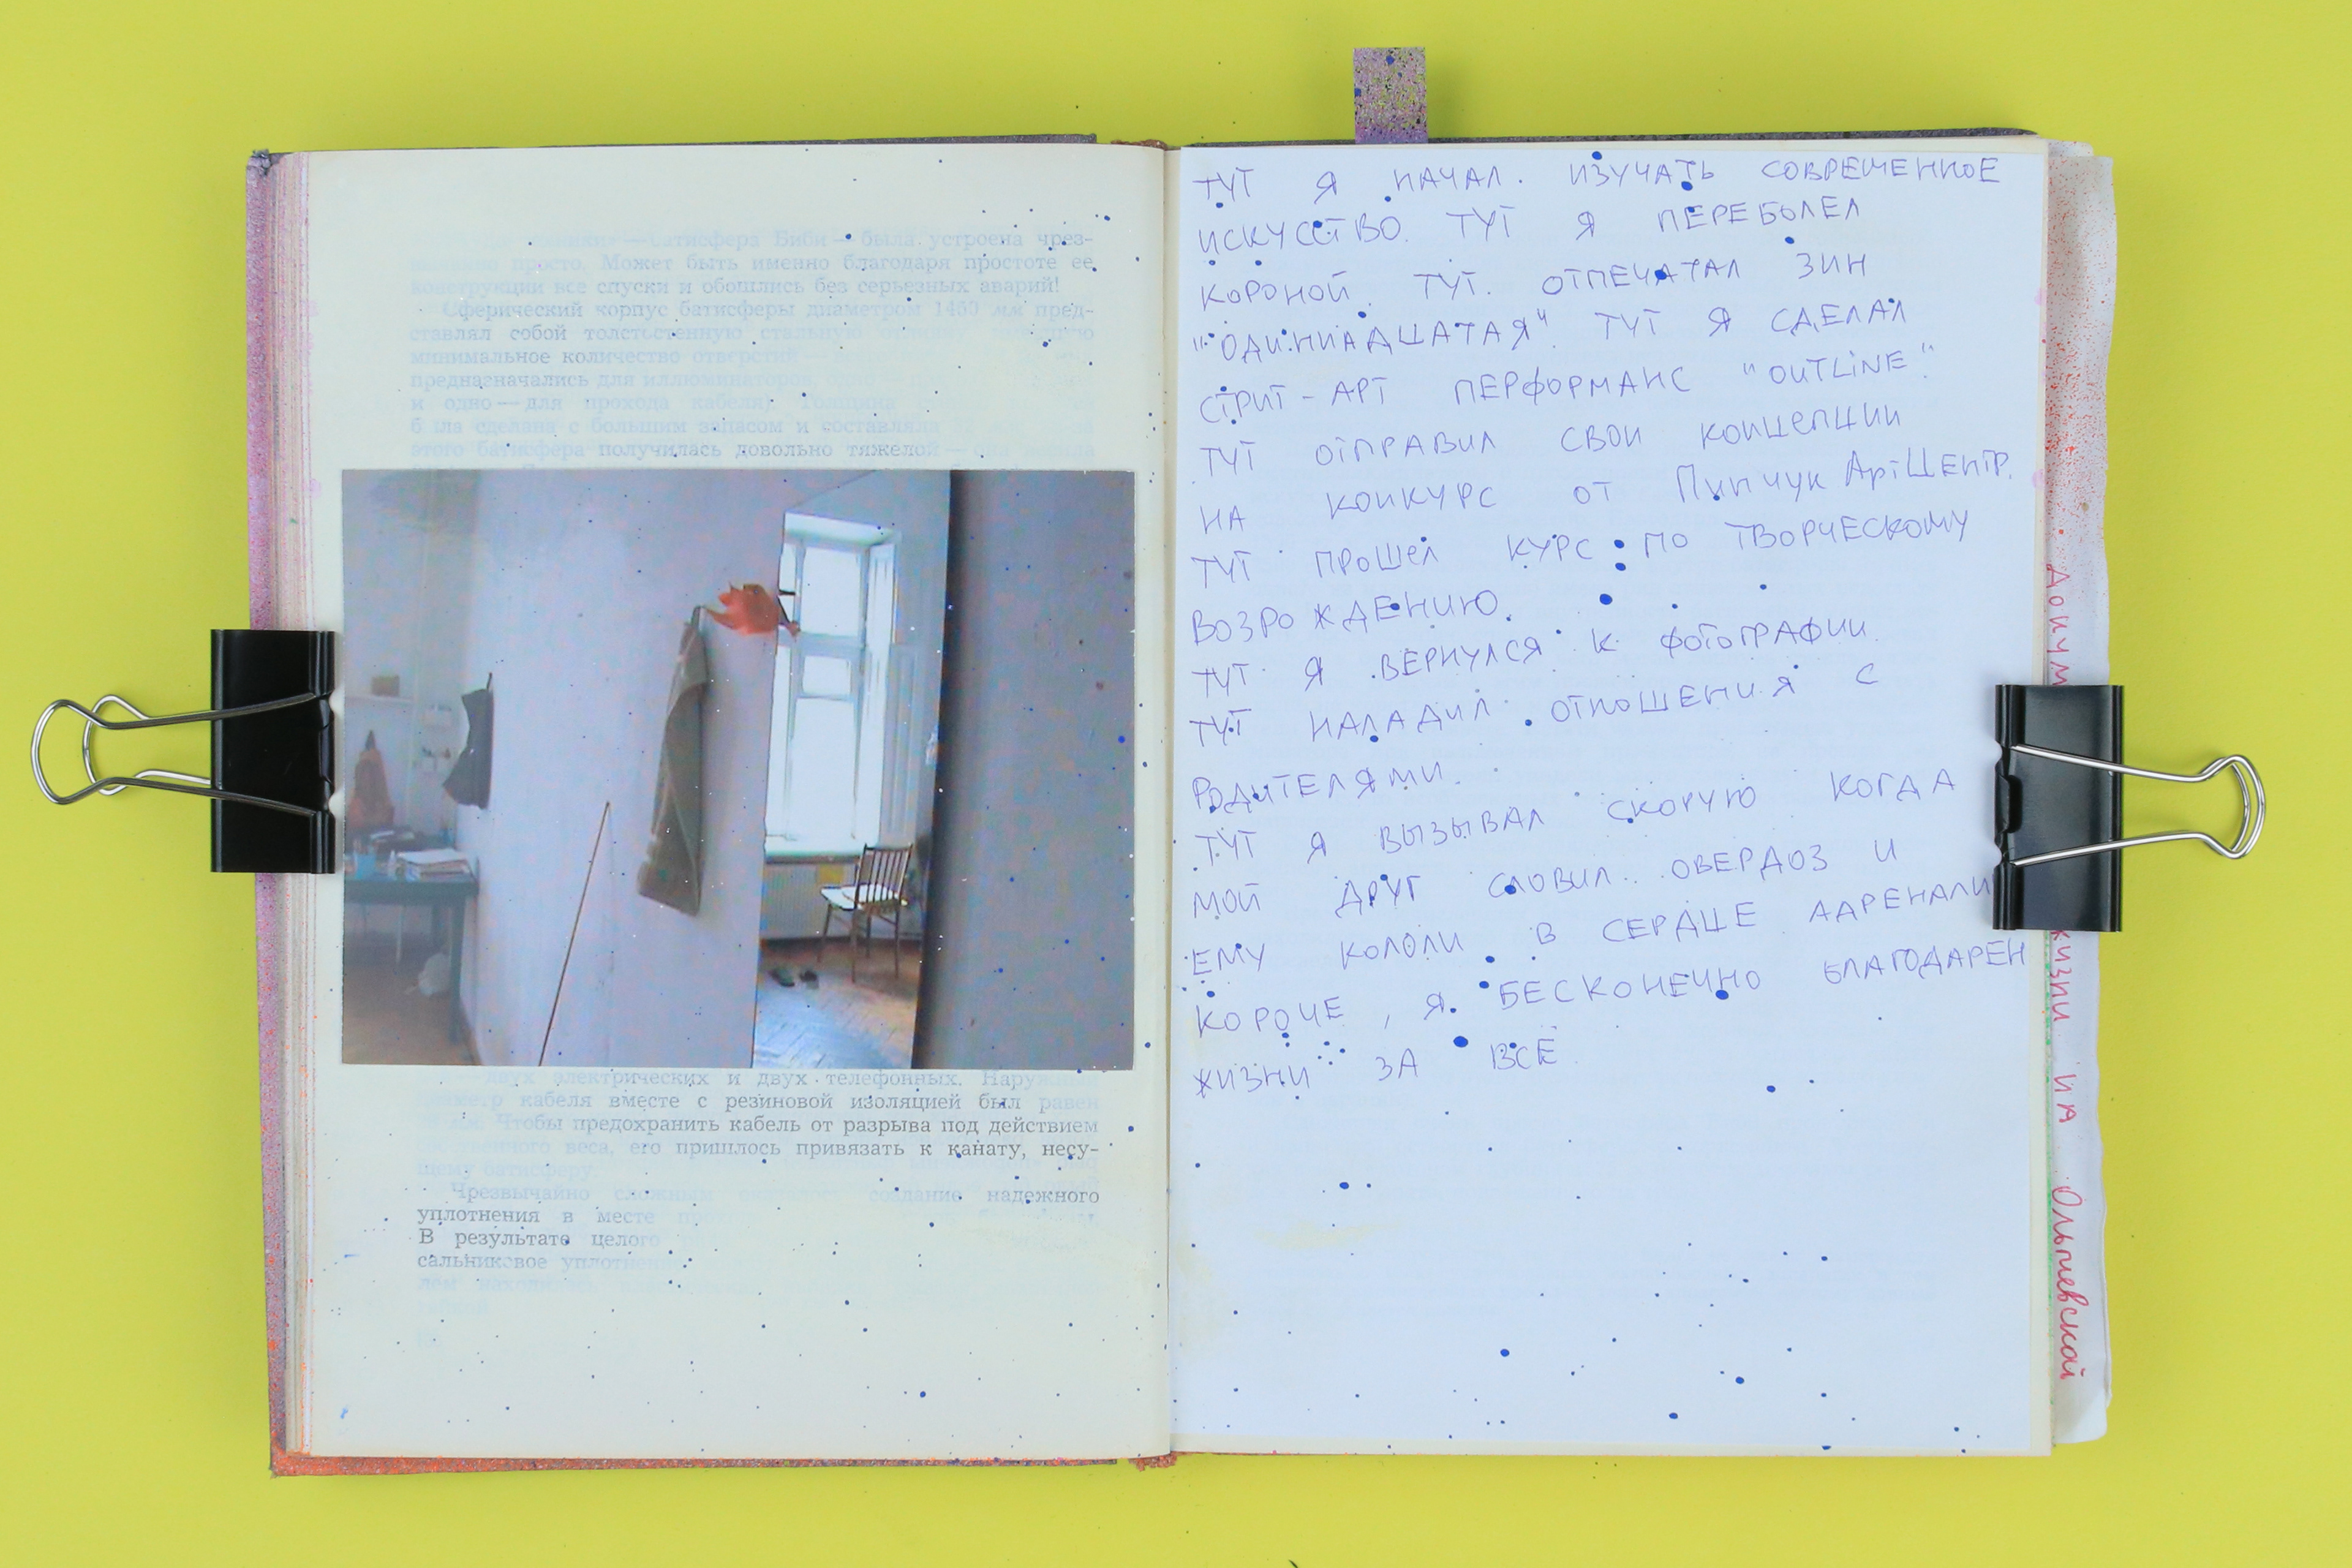 батисфера Биби — была устроена чрез-
просто. Может быть именно благодаря простоте ее
конструкции все спуски и обошлись без серьезных аварий!
Сферический корпус батисферы диаметром 1460 мм пред-
ставлял собой толстостенную стальную
минимальное количество отверстий —
предназначались для иллюминаторов, одно
и одно — для прохода кабеля). Толщина
была сделана с большим запасом и составляла
этого батисфера получилась довольно тяжелой —
двух электрических и двух телефонных. Наружный
диаметр кабеля вместе с резиновой изоляцией был равен
Чтобы предохранить кабель от разрыва под действием
собственного веса, его пришлось привязать к канату, несу-
щему батисферу.
Чрезвычайно сложным создание надежного
уплотнения в месте
В результате целого
сальниковое уплотнение
ТУТ Я НАЧАЛ ИЗУЧАТЬ СОВРЕМЕННОЕ
ИСКУССТВО. ТУТ Я ПЕРЕБОЛЕЛ
КОРОНОЙ. ТУТ ОТПЕЧАТАЛ ЗИН
"ОДИННАДЦАТАЯ". ТУТ Я СДЕЛАЛ
СТРИТ-АРТ ПЕРФОРМАНС "OUTLINE".
ТУТ ОТПРАВИЛ СВОИ КОНЦЕПЦИИ
НА КОНКУРС ОТ ПинчукАртЦентр.
ТУТ ПРОШЕЛ КУРС ПО ТВОРЧЕСКОМУ
ВОЗРОЖДЕНИЮ.
ТУТ Я ВЕРНУЛСЯ К ФОТОГРАФИИ.
ТУТ НАЛАДИЛ ОТНОШЕНИЯ С
РОДИТЕЛЯМИ.
ТУТ Я ВЫЗЫВАЛ СКОРУЮ КОГДА
МОЙ ДРУГ СЛОВИЛ ОВЕРДОЗ И
ЕМУ КОЛОЛИ В СЕРДЦЕ ААРЕНАЛИ
КОРОЧЕ, Я БЕСКОНЕЧНО БЛАГОДАРЕН
ЖИЗНИ ЗА ВСЁ
Докум жизни на Ольгиевской